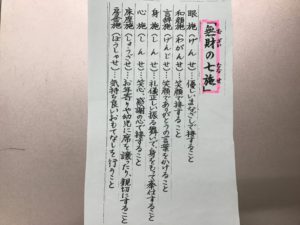 「無財の七施」
むざい なな せ
眼施(げんせ)…優しいまなざしで接すること
和顔施(わがんせ)…笑顔で接すること
言辞施(げんじせ)…笑顔でありがとうの言葉をかけること
身施(しんせ)…礼儀正しい振る舞いで、身をもって奉仕すること
心施(しんせ)…笑心、感謝の心で接すること
床座施(しょうざせ)…お年寄りや幼児に席を譲ったり、親切にすること
房舎施(ぼうしゃせ)…気持ち良いおもてなしを行うこと